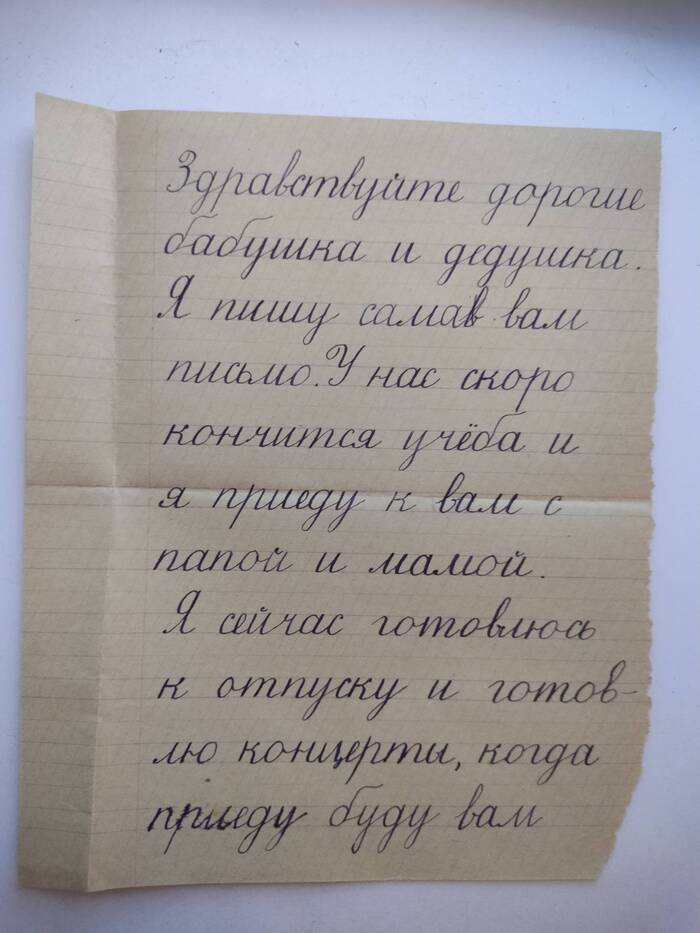 Здравствуйте дорогие
бабушка и дедушка.
Я пишу сама вам
письмо. У нас скоро
кончится учёба и
я приеду к вам с
папой и мамой.
Я сейчас готовлюсь
к отпуску и готов-
лю концерты, когда
приеду буду вам